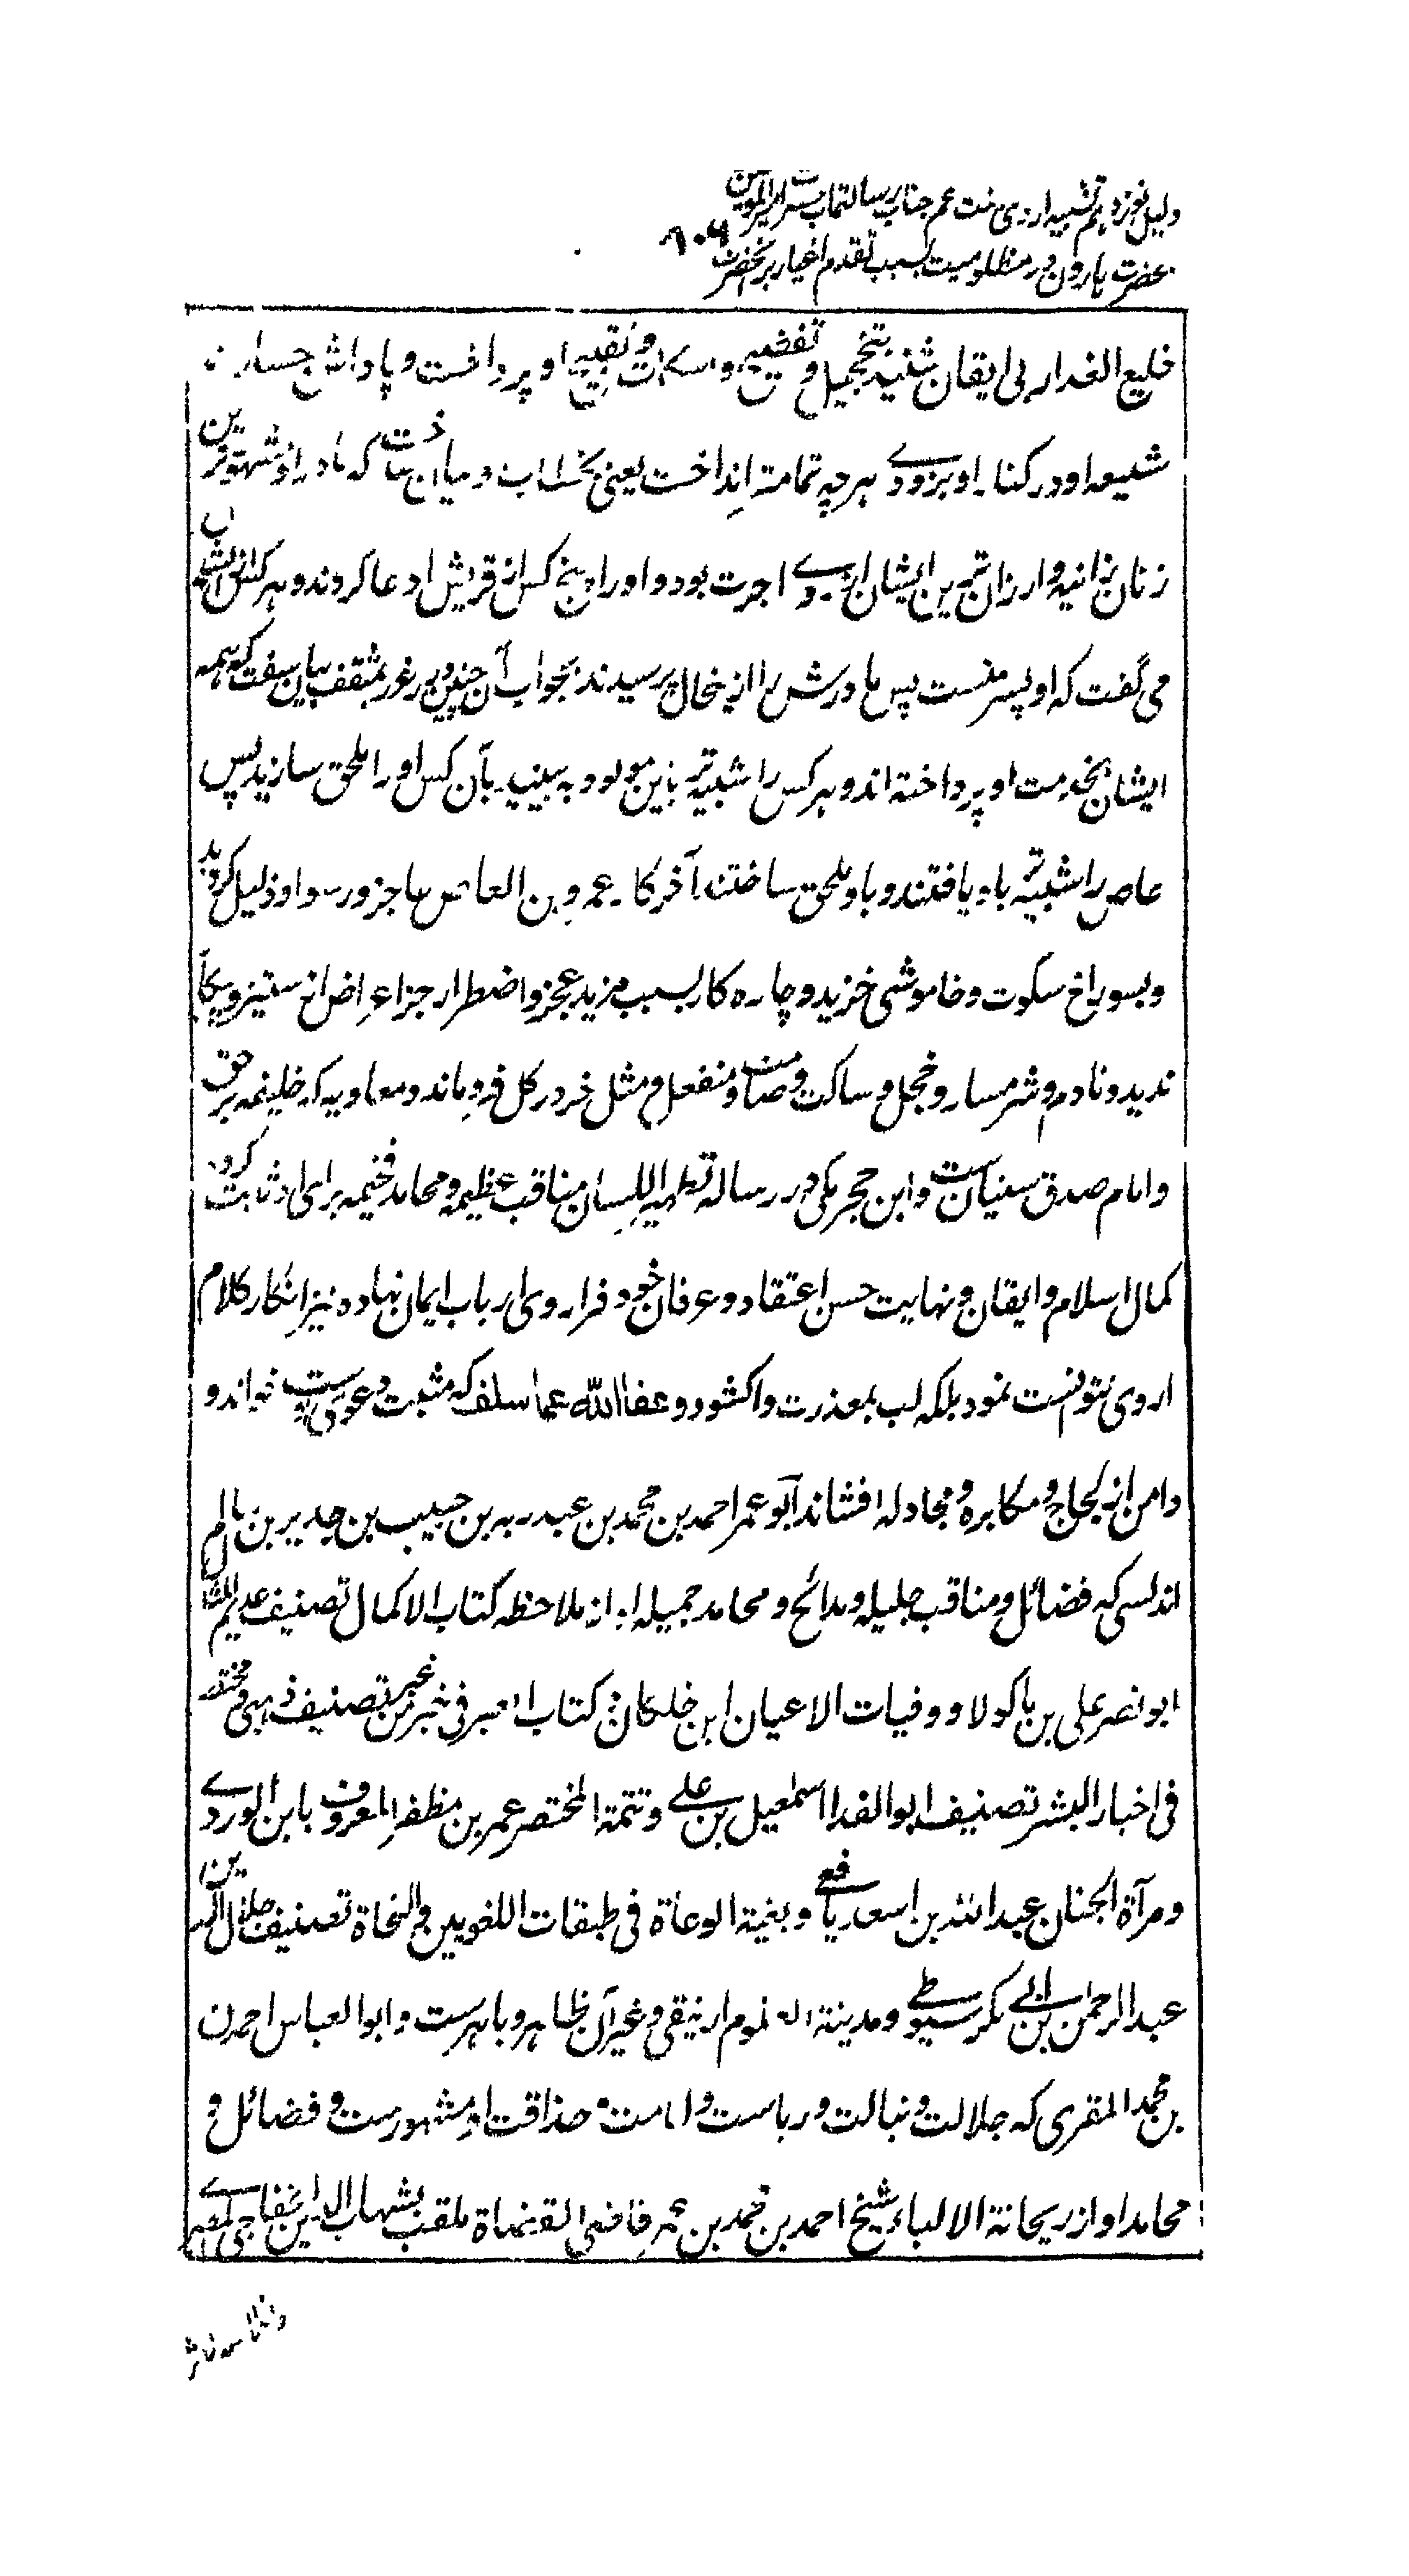 دلیل نوزدهم تشبیه اروی بنت عم جناب رسالتمآب جناب امیرالمومنین
بحضرت هارون در مظلومیت بسبب تقدم اغیار برآنحضرت ۹۰۶
خلیع العذار بی ایقان شنید بتخجیل و تفضیح و اسکات و تقبیح او پرداخت و پاداش جسارت
شنیعه او در کنار او بزودی هرچه تمامتر انداخت یعنی بخطاب و میان ساخت که مادر او مشهورترین
زنان زانیه و ارزان ترین ایشان از روی اجرت بود و او را پنج کس از قریش ادعا کردند و هر کس از ایشان
می گفت که او پسر منست پس مادرش را ازینحال پرسیدند بجواب آن چنین در غرر بمثقب بیان سفت که همه
ایشان بخدمت او پرداخته اند و هر کس را شبیه تر باین مولود به بینید بآن کس او را ملحق سازید پس
عاص را شبیه تر باو یافتند و باو ملحق ساختند آخر کار عمرو بن العاص عاجز و رسوا و ذلیل گردید
و بسوراخ سکوت و خاموشی خزید و چاره کار بسبب مزید عجز و اضطرار جز اعراض از ستیز و پیکار
ندید و نادم و شرمسار و خجل و ساکت و صامت و منفعل و مثل خر در گل فرو ماند و معاویه که خلیفه برحق
و امام صدق سنیانست و ابن حجر مکی در رساله تطهیر اللسان مناقب عظیمه و محامد فخیمه برای او ثابت کرده
کمال اسلام و ایقان و نهایت حسن اعتقاد و عرفان خود فراروی ارباب ایمان نهاده نیز انکار کلام
اروی نتوانست نمود بلکه لب بمعذرت واکشود و عفا الله عما سلف که مثبت دعوی ست خواند و
دامن از لجاج و مکابره و مجادله افشاند ابو عمر احمد بن محمد بن عبد ربه بن حبیب بن حدیر بن سالم
اندلسی که فضائل و مناقب جلیله و مدائح و محامد جمیله او از ملاحظه کتاب الاکمال تصنیف عدیم المثال
ابو نصر علی بن ماکولا و وفیات الاعیان ابن خلکان و کتاب العبر فی خبر من غبر تصنیف ذهبی و مختصر
فی اخبار البشر تصنیف ابو الفدا اسمعیل بن علی و تتمة المختصر عمر بن مظفر المعروف بابن الوردی
و مرآة الجنان عبدالله بن اسعد یافعی و بغیة الوعاة فی طبقات اللغویین و النحاة تصنیف جلال الدین
عبدالرحمن بن ابی بکر سیوطی و مدینة العلوم ارنیقی و غیر آن ظاهر و باهرست و ابو العباس احمد بن
بن محمد المقری که جلالت و نبالت و ریاست و امامت و حذاقت او مشهورست و فضائل و
محامد او از ریحانة الالباء شیخ احمد بن محمد بن عمر قاضی القضاة ملقب بشهاب الدین خفاجی المصری